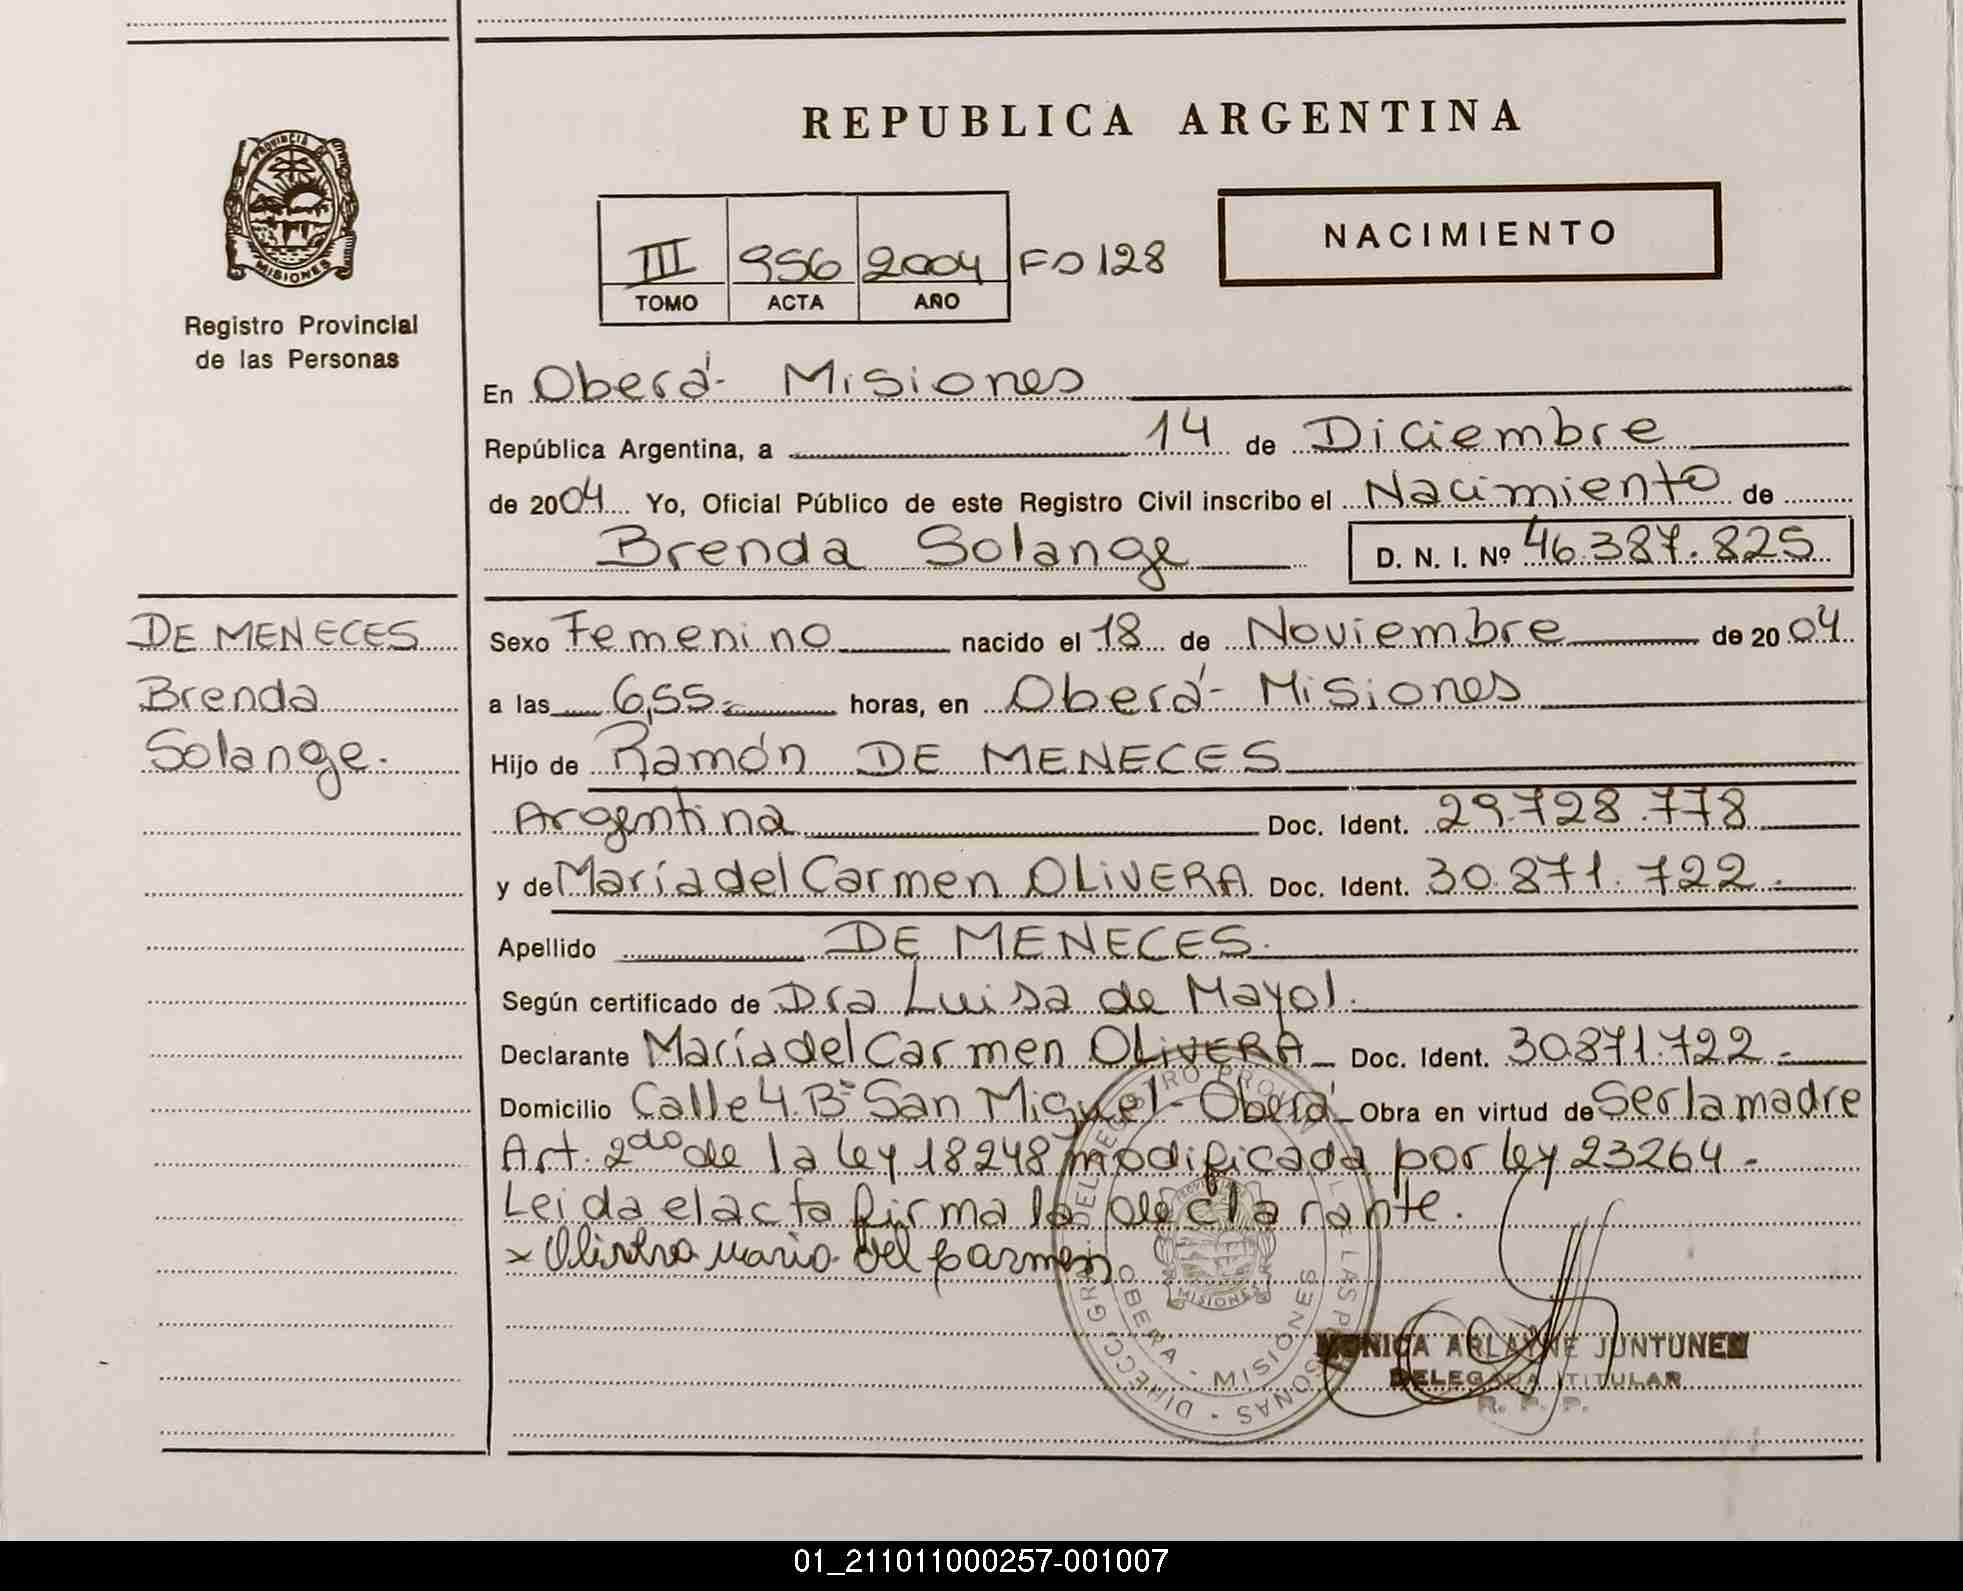 REPUBLICA ARGENTINA
PROVINCIA DE
MISIONES
Registro Provincial
de las Personas
III 956 2004 FO 128
TOMO ACTA AÑO
NACIMIENTO
En Oberá- Misiones
República Argentina, a 14 de Diciembre
de 2004 Yo, Oficial Público de este Registro Civil inscribo el Nacimiento de
Brenda Solange D. N. I. Nº 46.387.825
DE MENECES
Brenda
Solange.
Sexo Femenino nacido el 18 de Noviembre de 2004
a las 6,55.- horas, en Oberá- Misiones
Hijo de Ramón DE MENECES
Argentina Doc. Ident. 29.728.778
y de María del Carmen OLIVERA Doc. Ident. 30.871.722.
Apellido DE MENECES.
Según certificado de Dra Luisa de Mayol.
Declarante María del Carmen OLIVERA Doc. Ident. 30.871.722.-
Domicilio Calle 4.Bº San Miguel- Oberá Obra en virtud de Ser la madre
Art. 2do de la ley 18248 modificada por ley 23264.-
Leida el acta firma la declarante.
x Olivera maria del carmen
OBERA - MISIONES
MISIONES
MONICA ARLAYNE JUNTUNEN
DELEGADA TITULAR
R. P. P.
01_211011000257-001007